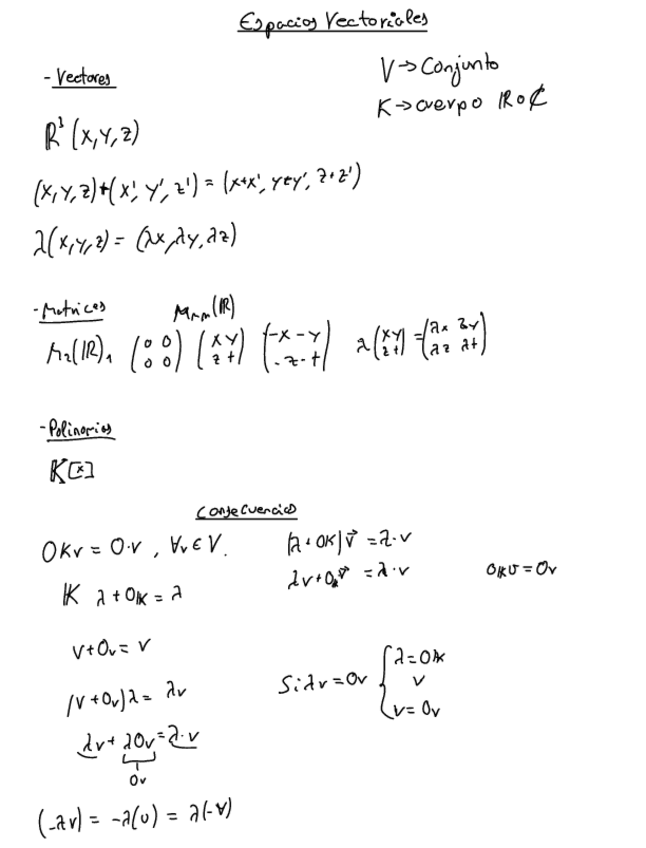 Espacios Vectoriales
- Vectores
V → Conjunto
K → cuerpo ℝ o ℂ
ℝ³ (x, y, z)
(x, y, z) + (x', y', z') = (x+x', y+y', z+z')
λ(x, y, z) = (λx, λy, λz)
- Matrices M_{n,m}(ℝ)
M₂(ℝ), (0 0 / 0 0) (x y / z t) (-x -y / -z -t) λ(x y / z t) = (λx λy / λz λt)
- Polinomios
K[x]
Consecuencias
0_K v = 0_V, ∀v ∈ V.
(λ + 0_K) v⃗ = λ·v
λv + 0_K v⃗ = λ·v
0_K v = 0_V
K λ + 0_K = λ
v + 0_V = v
(v + 0_V) λ = λv
λv + λ0_V = λ·v
0_V
Si λv = 0_V { λ = 0_K
v
v = 0_V
(-λv) = -λ(v) = λ(-v)